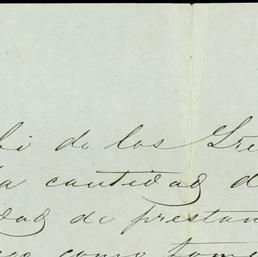 bi de los Sre
la cantidad d
idad de prestam
como toma